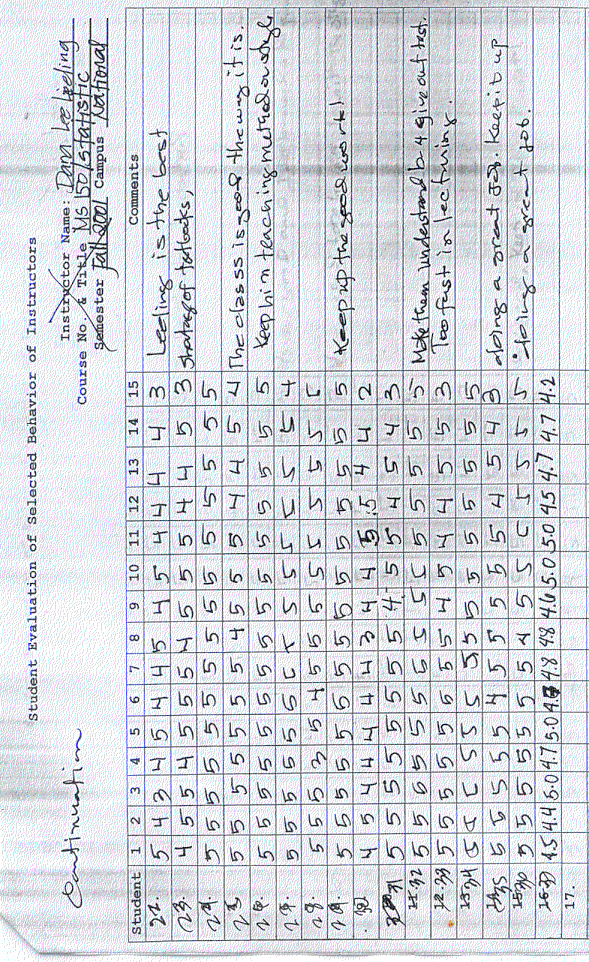 Continuation
Student Evaluation of Selected Behavior of Instructors
Instructor Name: Dana Lee Leeling
Course No. & Title MS 150/statistic
Semester fall 2001 Campus National
Student 1 2 3 4 5 6 7 8 9 10 11 12 13 14 15 Comments
22. 5 4 3 4 5 4 4 5 4 5 4 4 4 4 3 Leeling is the best
23. 4 5 5 4 5 5 5 4 5 5 5 4 4 5 3 shortage of textbooks,
24. 5 5 5 5 5 5 5 5 5 5 5 5 5 5 5
25 5 5 5 5 5 5 5 4 5 5 5 4 4 5 4 The classs is good the way it is.
26. 5 5 5 5 5 5 5 5 5 5 5 5 5 5 5 Keep him teaching method or style
27. 5 5 5 5 5 5 5 5 5 5 5 5 5 5 4
28 5 5 5 3 5 4 5 5 5 5 5 5 5 5 5
29 5 5 5 5 5 5 5 5 5 5 5 5 5 5 5 Keep up the good work!
30 4 5 4 4 4 4 4 3 4 4 5 5 4 4 2
31 5 5 5 5 5 5 5 5 4 5 5 4 5 4 3
32 5 5 5 5 5 5 5 5 5 5 5 5 5 5 5 Make them understand b4 give out test.
33 5 5 5 5 5 5 5 5 4 5 4 4 5 5 3 Too fast in lecturing.
34 5 5 5 5 5 5 5 5 5 5 5 5 5 5
35 5 5 5 5 5 4 5 5 5 5 5 4 5 4 3 doing a great job. Keep it up
36 5 5 5 5 5 5 5 4 5 5 5 5 5 5 5 doing a great job.
37 4.5 4.4 5.0 4.7 5.0 4.8 4.8 4.6 5.0 5.0 4.5 4.7 4.7 4.2
17.